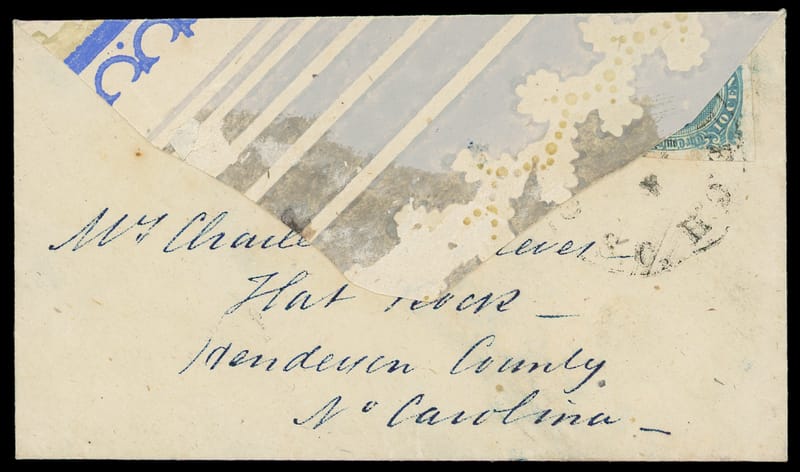 10 CEN
Mrs Charle ever
Flat Rock
Henderson County
No Carolina